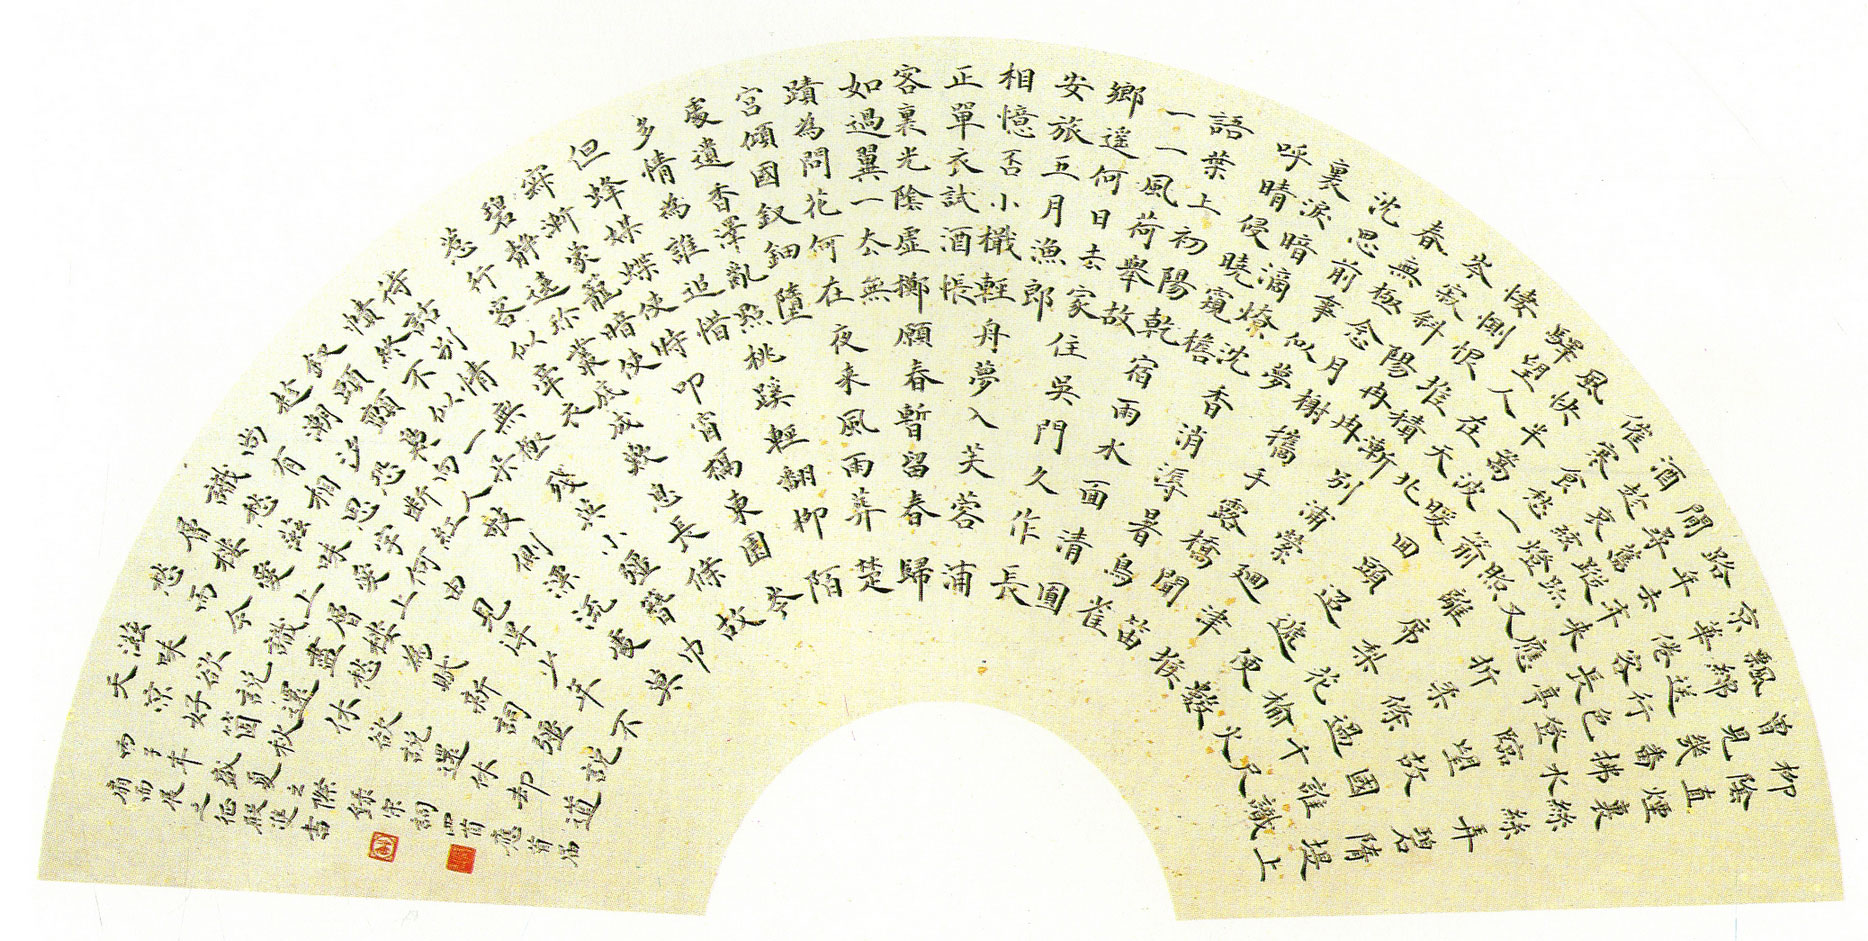 柳陰直煙裏絲絲弄碧隋堤上
曾見幾番拂水
飄綿送行色登臨望故國誰識
京華倦客長亭
路年年去歲來應折柔條過千尺
閒尋舊蹤跡又
酒趁哀弦燈照離席梨花榆火
催寒食愁一箭
風快半篙波暖回頭迢遞便數
驛望人在天北
悽惻恨堆積漸別浦縈迴津堠
岑寂斜陽冉冉
春無極念月榭攜手露橋聞笛
沈思前事似夢
裏淚暗滴燎沈香消溽暑鳥雀
呼晴侵曉窺檐
語葉上初陽乾宿雨水面清圓
一一風荷舉故
鄉遙何日去家住吳門久作長
安旅五月漁郎
相憶否小檝輕舟夢入芙蓉浦
正單衣試酒悵
客裏光陰虛擲願春暫留春歸
如過翼一去無
蹟為問花何在夜来風雨葬楚
宮傾國釵鈿墮
處遺香澤亂點桃蹊輕翻柳陌
多情為誰追惜
但蜂媒蝶使時叩窗槅東園岑
寂漸蒙籠暗
碧靜遶珍叢底成歎息長條故
惹行客似牽衣
待話別情無極殘英小強簪巾
幘終不似一朵
釵頭顫裊向人欹側漂流處莫
趁潮汐恐斷紅
尚有相思字何由見得少年不
識愁滋味愛上
層樓愛上層樓為賦新詞強說
愁而今識盡愁
滋味欲說還休欲說還休却道
天涼好箇秋
丙子年盛夏之際錄宋詞四首應首屆
扇面展之征